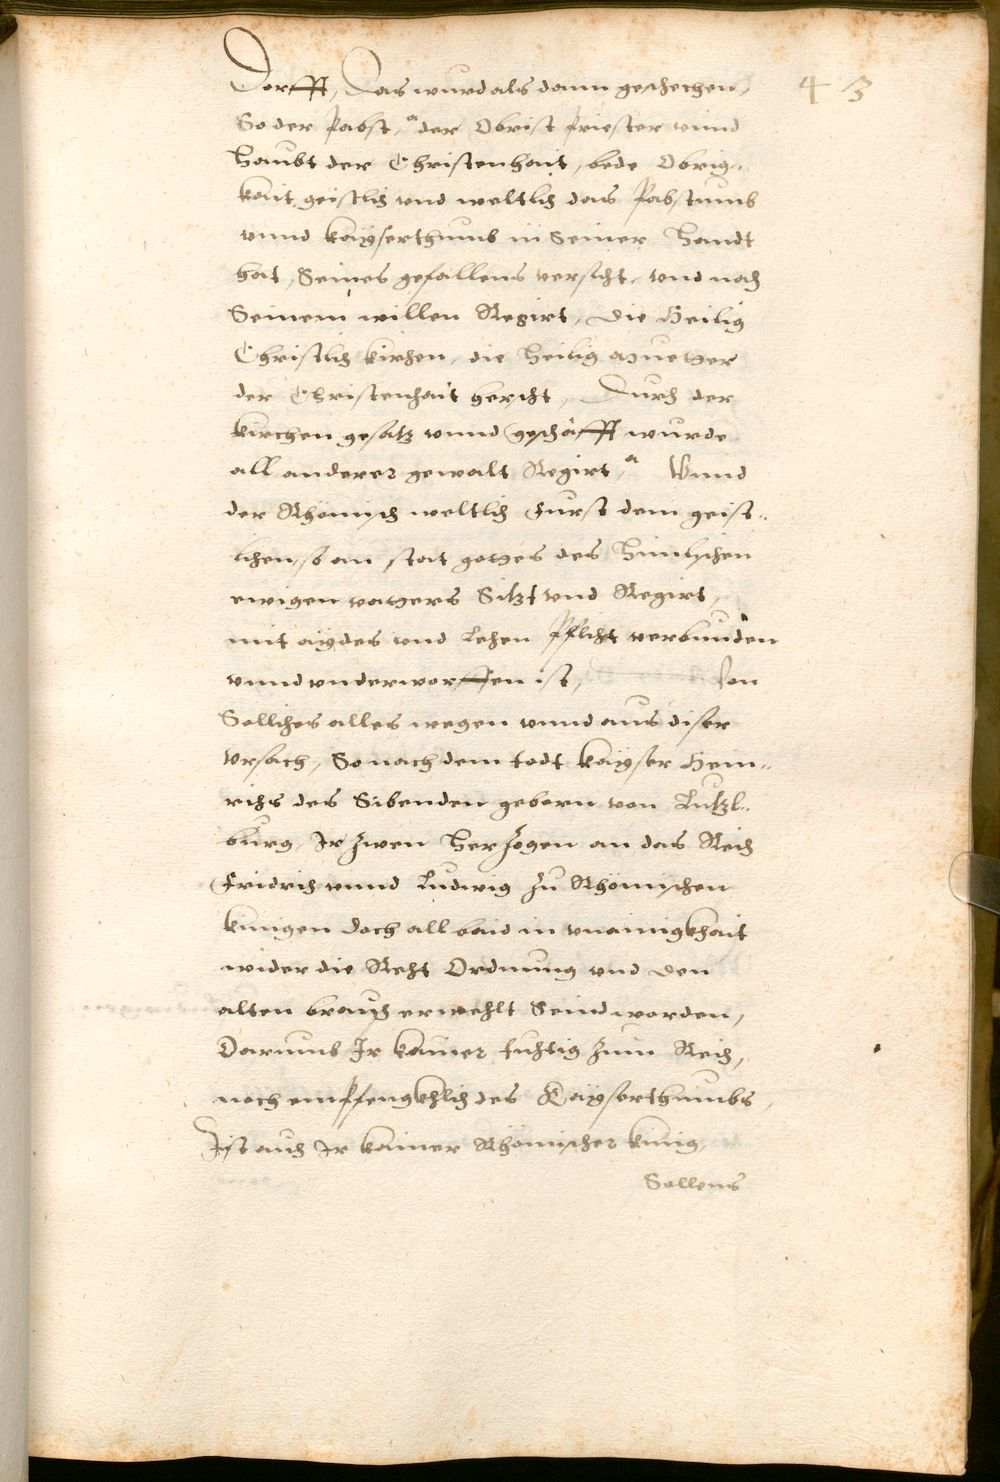 43
Dorfft, Das wurd als dann geschechen,
So der Pabst, a der Obrist Priester vnnd
Haubt der Christenhait, bede Obrig„
kait, geistlich vnd weltlich das Pabstumb
vnnd kayserthumb in Seiner Handt
hat, Seines gefallens versicht, vnd nach
Seinem willen Regirt, die Heilig
Christlich kirchen, die Heilig muetter
der Christenhait herscht, Durch der
kirchen gesatz vnnd geschäfft wurde
all anderer gewalt Regirt, a Vnnd
der Rhömisch weltlich Furst dem geist„
lichen, so an stat gottes des Himlischen
ewigen vatters Sitzt vnd Regirt,
mit aydes vnd Lehen Pflicht verbunden
vnnd vnderworffen ist, Von
Solliches alles wegen vnnd aus diser
vrsach, So nach dem todt kayser Hein„
richs des Sibenden geborn von Lutzl„
burg, Ir zwen Herzogen an das Reich
Fridrich vnnd Ludwig zu Rhömischen
kunigen doch all baid in vnainigkhait
wider die Recht Ordnung vnd den
alten brauch erwehlt Seind worden,
Darumb Ir kainer tuchtig zum Reich,
noch empfengkhlich des Kayserthumbs,
Ist auch Ir kainer Rhömischer kunig,
Sollens